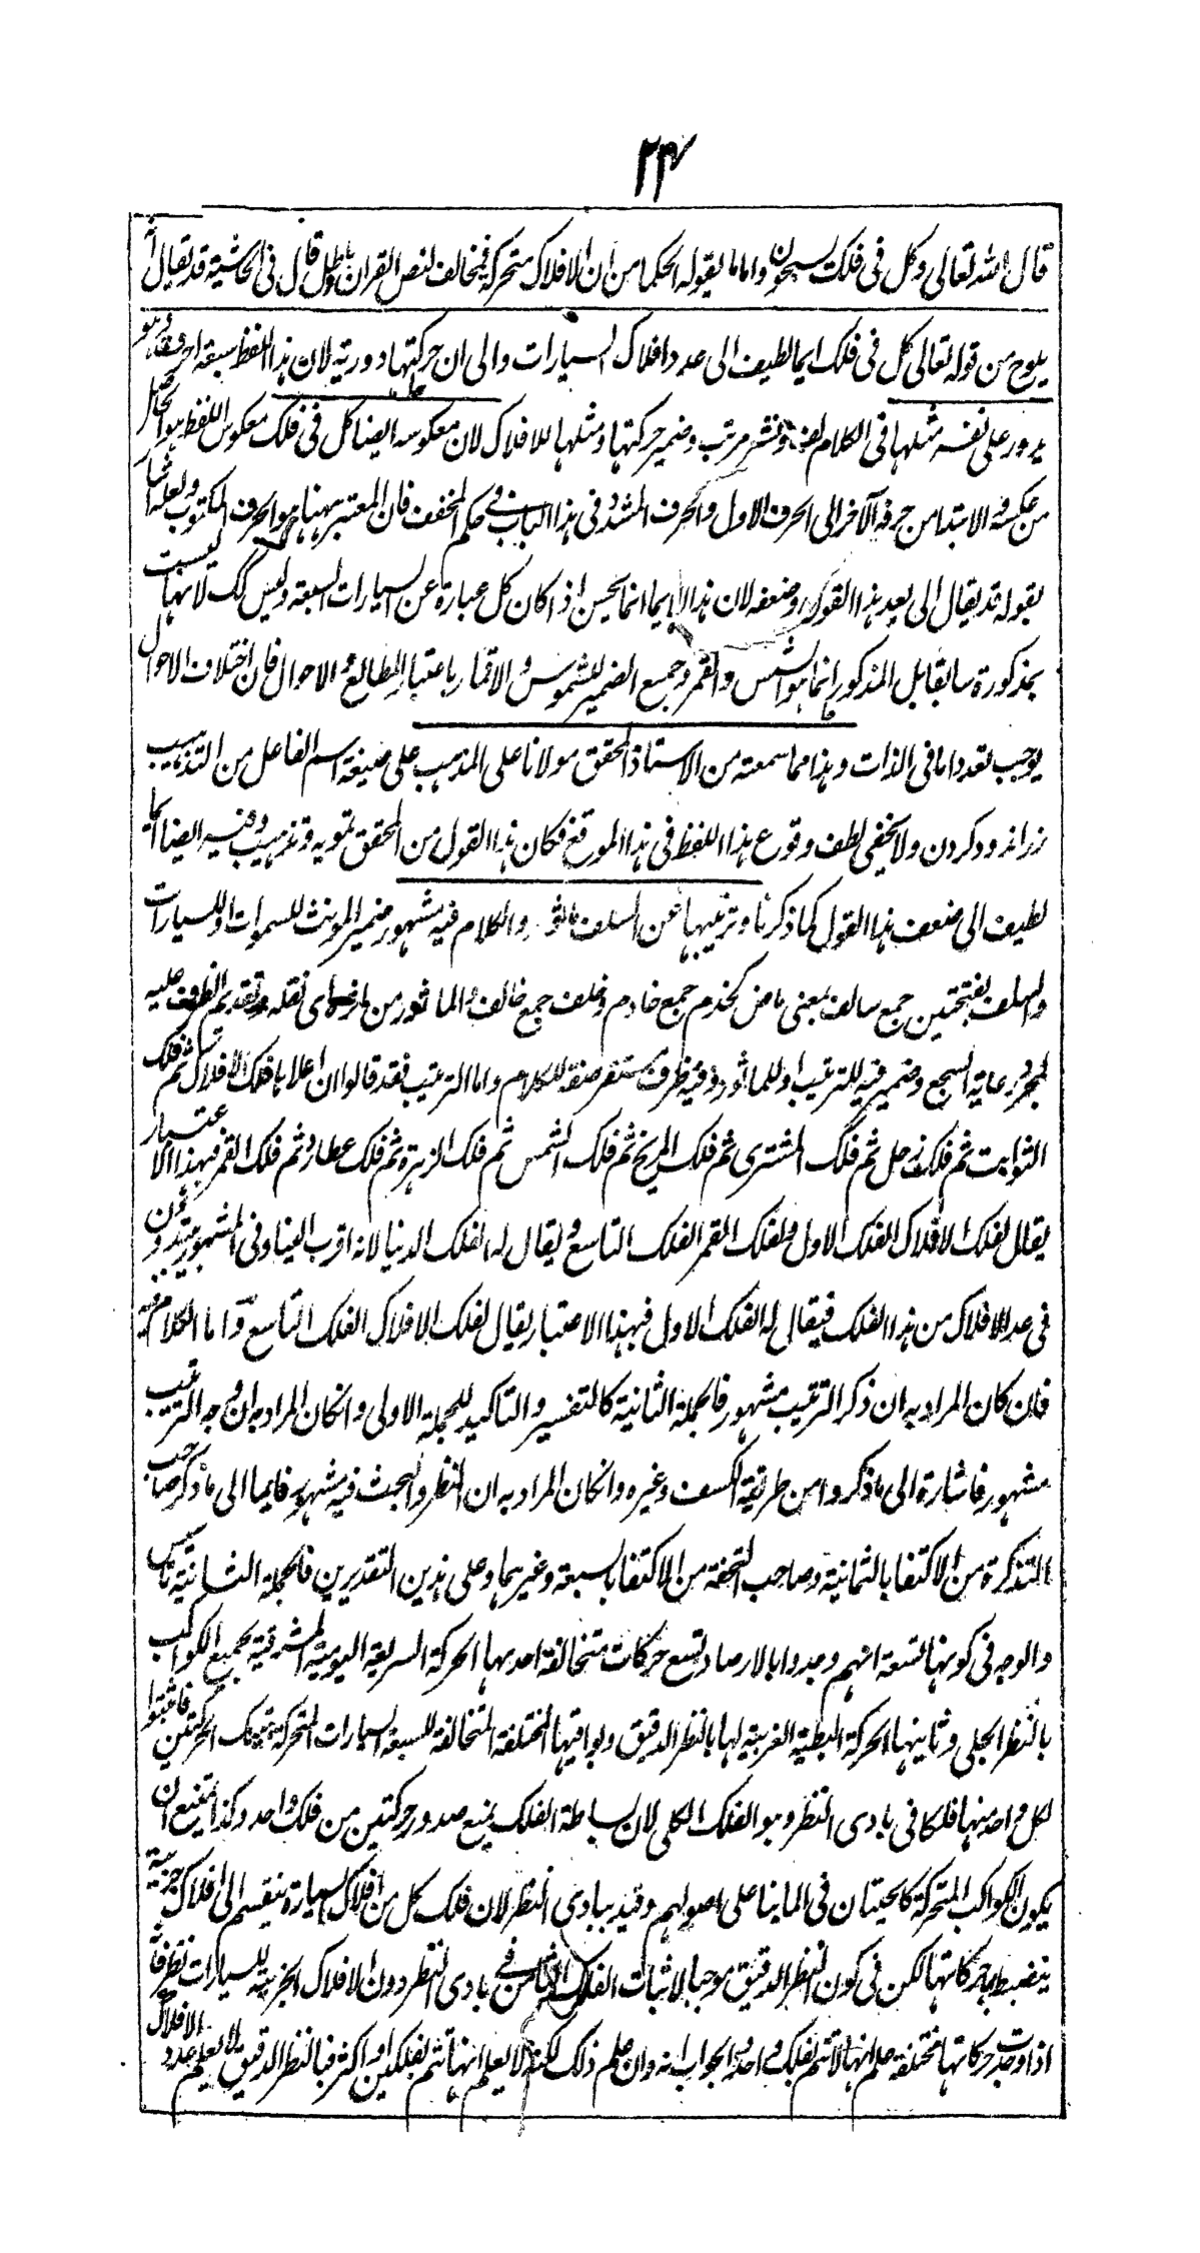 ٢٤
قال الله تعالى وكل فى فلك يسبحون واما ما يقوله الحكما من ان الافلاك متحركة فيخالف لنص القران باطل قال فى الحاشية قد يقال انه
يلوح من قوله تعالى كل فى فلك ايما لطيف الى عدد افلاك السيارات والى ان حركتها دورية لان هذا اللفظ سبعة احرف وهو
يدور على نفسه مثلها فى الكلام لف ونشر مرتب وضمير حركتها ومثلها للافلاك لان معكوسه ايضا كل فى فلك معكوس اللفظ هو الحاصل
من عكسه الابتدا من حرفه الآخر الى الحرف الاول والحرف المشدد فى هذا الباب فى حكم المخفف فان المعتبر ههنا هو الحرف المكتوب ولعله اشار
بقوله قد يقال الى بعد هذا القول وضعفه لان هذا الايما انما يحسن اذا كان كل عبارة عن السيارات السبعة وليس كك لانها ليست
بمذكورة سابقا بل المذكور انما هو الشمس والقمر وجمع الضمير للشموس والاقمار باعتبار المطالع والاحوال فان اختلاف الاحوال
يوجب تعددا ما فى الذات وهذا مما سمعته من الاستاذ المحقق مولانا على المذهب على صيغة اسم الفاعل من التذهيب
زر اندود كردن ولا يخفى لطف وقوع هذا اللفظ فى هذا الموقع فكان هذا القول من المحقق تمويه وتذهيب وفيه ايضا ايما
لطيف الى ضعف هذا القول كما ذكرنا وترتيبها عن السلف ماثور والكلام فيه مشهور ضمير المونث للسموات او للسيارات
والسلف بفتحتين جمع سالف بمعنى ماض كخدم جمع خادم وخلف جمع خالف والماثور من اى نقله وتقديم الظرف عليه
لمجرد رعاية السجع وضمير فيه للترتيب او للماثور وفيه ظرف مستقر صفة للكلام واما الترتيب فقد قالوا ان اعلاها فلك الافلاك ثم فلك
الثوابت ثم فلك زحل ثم فلك المشترى ثم فلك المريخ ثم فلك الشمس ثم فلك الزهرة ثم فلك عطارد ثم فلك القمر فبهذا الاعتبار
يقال لفلك الافلاك الفلك الاول ولفلك القمر الفلك التاسع ويقال له الفلك الدنيا لانه اقرب الينا وفى المشهور يبتدؤن
فى عد الافلاك من هذا الفلك فيقال له الفلك الاول فبهذا الاعتبار يقال لفلك الافلاك الفلك التاسع واما الكلام فيه
فان كان المراد به ان ذكر الترتيب مشهور فالجملة الثانية كالتفسير والتاكيد للجملة الاولى وانكان المراد به ان وجه الترتيب
مشهور فاشارة الى ما ذكروا من طريقة الكسف وغيره وانكان المراد به ان النظر والبحث فيه مشهور فايما الى ما ذكر صاحب
التذكرة من الاكتفا بالثمانية وصاحب التحفة من الاكتفا بسبعة وغيرهما وعلى هذين التقديرين فالجملة الثانية تاسيس
والوجه فى كونها تسعة انهم وجدوا بالارصاد تسع حركات متخالفة احدها الحركة السريعة اليومية المشرقية بجميع الكواكب
بالنظر الجلى وثانيها الحركة البطية الغربية لها بالنظر الدقيق وبواقيها المختلفة المتخالفة للسبعة السيارات المتحركة بتينك الحركتين فاثبتوا
لكل واحد منها فلكا فى بادى النظر وهو الفلك الكلى لان بساطة الفلك يمنع صدور حركتين من فلك واحد وكذا يمتنع ان
يكون الكواكب المتحركة كالحيتان فى الما بنا على اصولهم وقيد ببادى النظر لان فلك كل من افلاك السيارة ينقسم الى افلاك جزئية
ينضبط بها حركاتها لكن فى كون النظر الدقيق موجبا لاثبات الفلك الثامن فى بادى النظر دون الافلاك الجزئية للسيارات نظر فانه
اذا وجدت حركاتها مختلفة علم انها لا تتم بفلك واحد والجواب انه وان علم ذلك لكنه لا يعلم انها تتم بفلكين او اكثر فبالنظر الدقيق لا يعلم عدد الافلاك